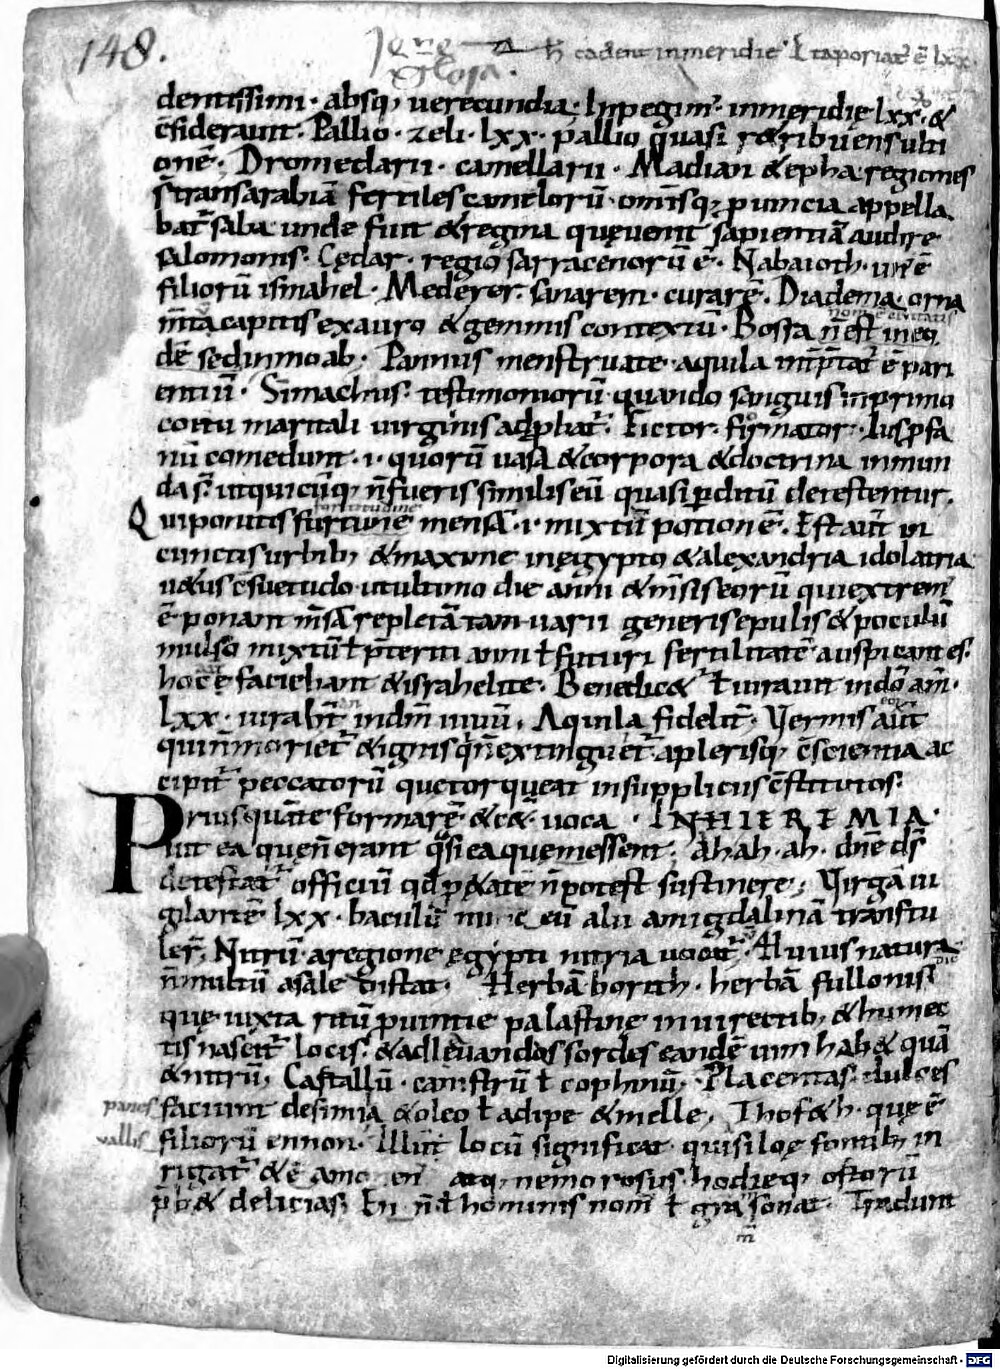 148.
h cadent in meridie ł taporiat᷑ ē lxx
dentissimi · absq; uerecundia · Inpegim᷑ · inmeridie lxx · &
c̄sideraunt · Pallio · zeli · lxx · pallio quasi r&ribuens ulti
onē · Dromedarii · camellarii · Madian & epha regiones
s̄ transarabiā fertiles camelorū · om̄isq; ꝓuincia appella
bat᷑ saba unde fuit & regina quęuenit sapientiā audire
salomonis · Cędar · regio sarracenorū ē · Nabaioth · un᷑ ē
filiorū ismahel · Mederer · sanarem · curarē · Diadema · orna
nom̄ ē ciuitatis
m̄ta capitis exauro & gemmis contextū · Bosra n̄ est ineo
dē sedinmoab · Pannus menstruate · aquila int̄p̄tat᷑ ē pari
entiū · Simachus · testimoniorū quando sanguis inprimo
coitu maritali uirginis adꝓbat᷑ · Fictor · formator · Ius ꝓfa
nū comedunt · i · quorū uasa & corpora & doctrina inmun
da s̄ · utquicūq; n̄ fueris similis eū quasi ꝑditū detestentur ·
fortitudine
Qui ponitis furtune mensā · i · mixtū potionē · Est aūt in
cunctis urbib; & maxime inęgypto & alexandria idolatria
u&us c̄suetudo · utultimo die anni & m̄sis eorū qui extrem᷑
ē ponant m̄sā repletā tam uarii generis epulis & poculū
mulso mixtū ł p̄teriti anni ł futuri fertilitatē auspicantes ·
hoc ē faciebant & israhelite · Benedic& ł iurauit indō am̄ ·
lxx · iurab̄t indm̄ uiuū · Aquila fidelit᷑ · Vermis aūt
qui n̄ moriet᷑ & ignis q̄ n̄ extinguet᷑ aplerisq; c̄scientia ac
cipit᷑ peccatorū quę torqueat insuppliciis c̄stitutos ·
Priusquā te formarē & c̄ · uoca · INHIEREMIA ·
uit ea quęn̄ erant q̄si ea quę n̄essent · Ah ah · ah · dn̄e ds̄
detestat᷑ officiū qd̄ ꝓ &ate n̄ potest sustinere · Virgā ui
gilantē lxx · baculū eū alii amigdalinā transtu
ler̄ · Nitrū aregione ęgypti nitria uocat᷑ · Huius natura
n̄ multū asale distat · Herbā borith · herbā fullonis
quę iuxta ritū ꝓuintie palastinę in uirectib; & humec
tis nascit᷑ locis · & adleuandas sordes eandē uim hab& quā
& nitrū · Castallū · canistrū ł cophinū · Placentas · dulces
panes faciunt desimia & oleo ł adipe & melle · Thofeth · quę ē
vallis filiorū ennon · Illūt locū significat qui siloę fontib; in
rigat᷑ & ē amoen atq; nemorosus hodieq; ortorū
p̄b& delicias · n̄ ł hominis nom̄ ł gra sonat · Tradunt
m̄
Digitalisierung gefördert durch die Deutsche Forschungsgemeinschaft - DFG